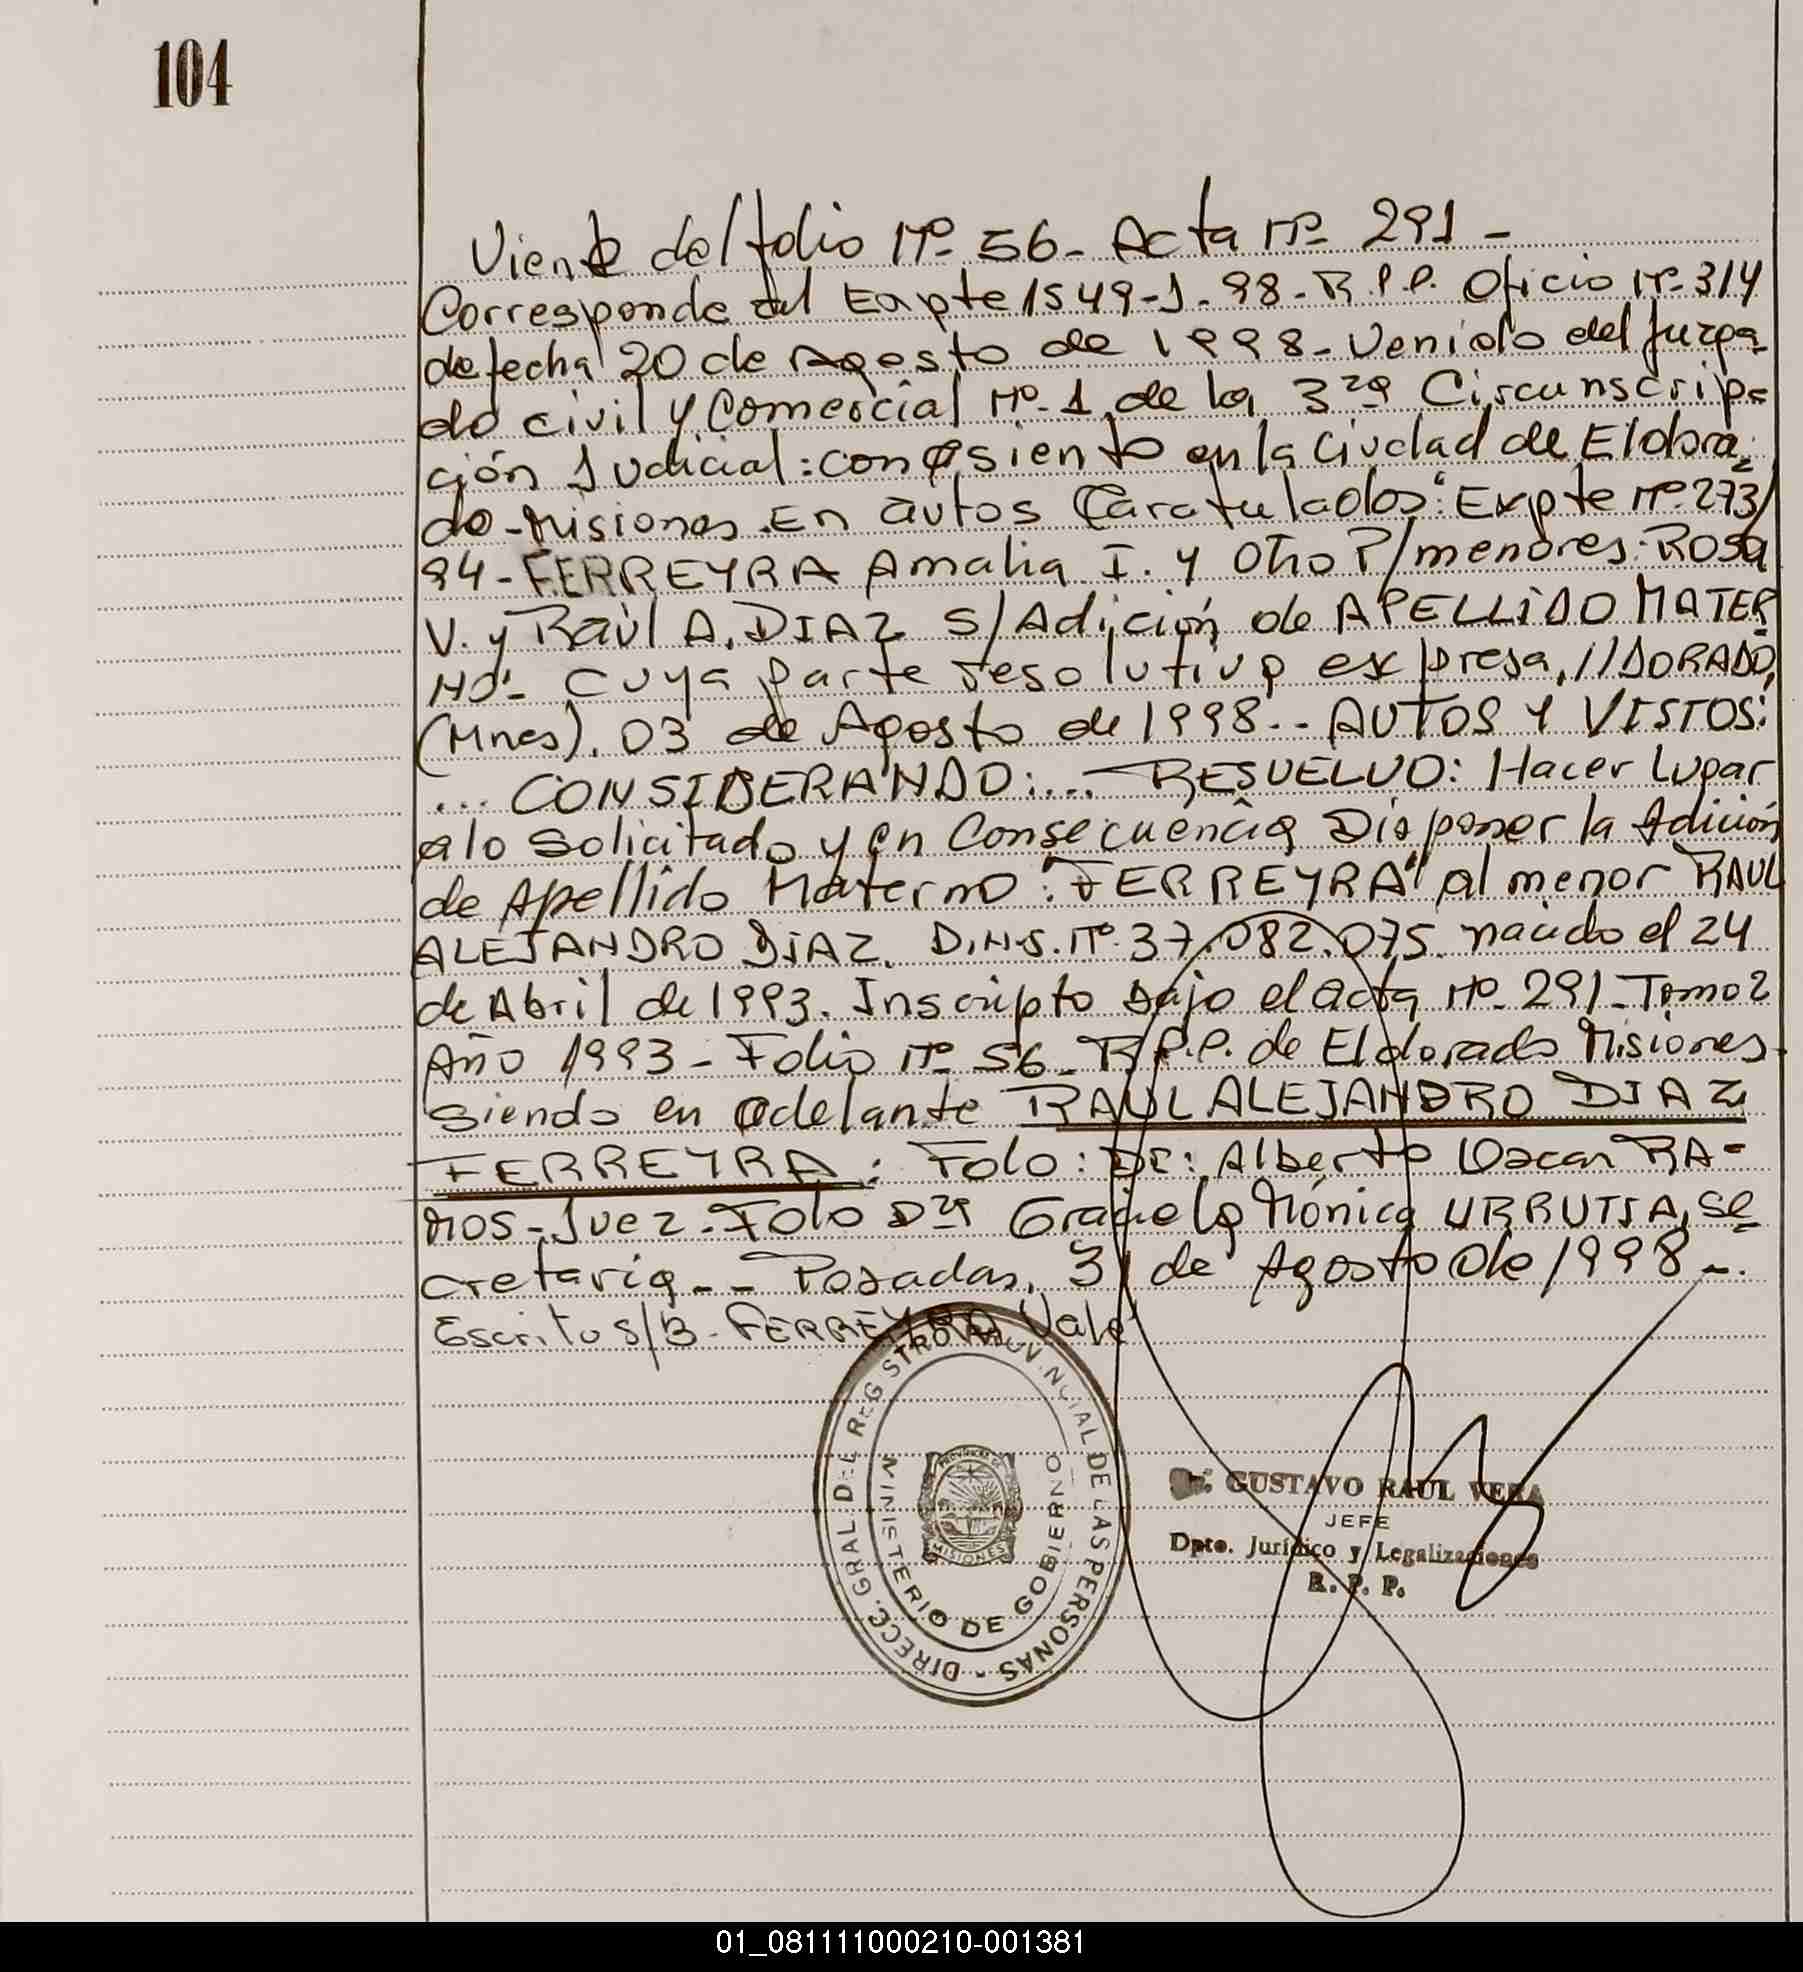 104
Viene del folio Nº 56 - Acta Nº 291 -
Corresponde al Expte 1549-J-98-R.P.P. Oficio Nº 314
de fecha 20 de Agosto de 1998 - Venido del Juzga-
do civil y Comercial Nº 1 de la 3ra Circunscrip-
ción Judicial: con asiento en la Ciudad de Eldora-
do - Misiones. En autos Caratulados: "Expte Nº 273/
94 - FERREYRA Amalia I. y Otro P/menores: Rosa
V. y Raúl A. DIAZ S/Adición de APELLIDO MATER
NO"- Cuya parte resolutiva expresa, //DORADO,
(Mnes). 03 de Agosto de 1998.- - AUTOS Y VISTOS:
... CONSIDERANDO:... RESUELVO: Hacer Lugar
a lo Solicitado y en Consecuencia Disponer la Adición
de Apellido Materno: "FERREYRA" al menor RAUL
ALEJANDRO DIAZ. D.N.I. Nº 37.082.075. nacido el 24
de Abril de 1993. Inscripto bajo el acta Nº 291 - Tomo 2
Año 1993 - Folio Nº 56 - R.P.P. de Eldorado Misiones.
Siendo en adelante RAUL ALEJANDRO DIAZ
FERREYRA: Fdo: Dr: Alberto Oscar RA-
MOS - Juez - Fdo Dra Graciela Mónica URRUTIA, Se
cretaria - - Posadas, 31 de Agosto de 1998 -.
Escrito S/B - FERREYRA Vale
DIRECC. GRAL. DEL REGISTRO PROVINCIAL DE LAS PERSONAS -
MINISTERIO DE GOBIERNO
MISIONES
GUSTAVO RAUL VERA
JEFE
Dpto. Jurídico y Legalizaciones
R. P. P.
01_081111000210-001381